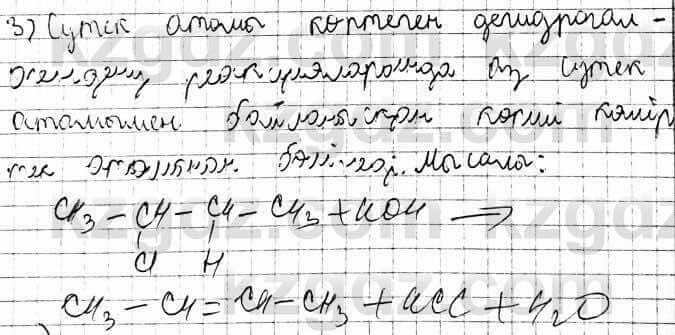 3) Сутек атомы көптеген дегидрогал-
огендеу реакцияларында аз сутек
атомымен байланысқан көрші көмір
тек атомынан бөлінеді. Мысалы:
CH₃ – CH – CH – CH₃ + KOH →
Cl H
CH₃ – CH = CH – CH₃ + KCl + H₂O